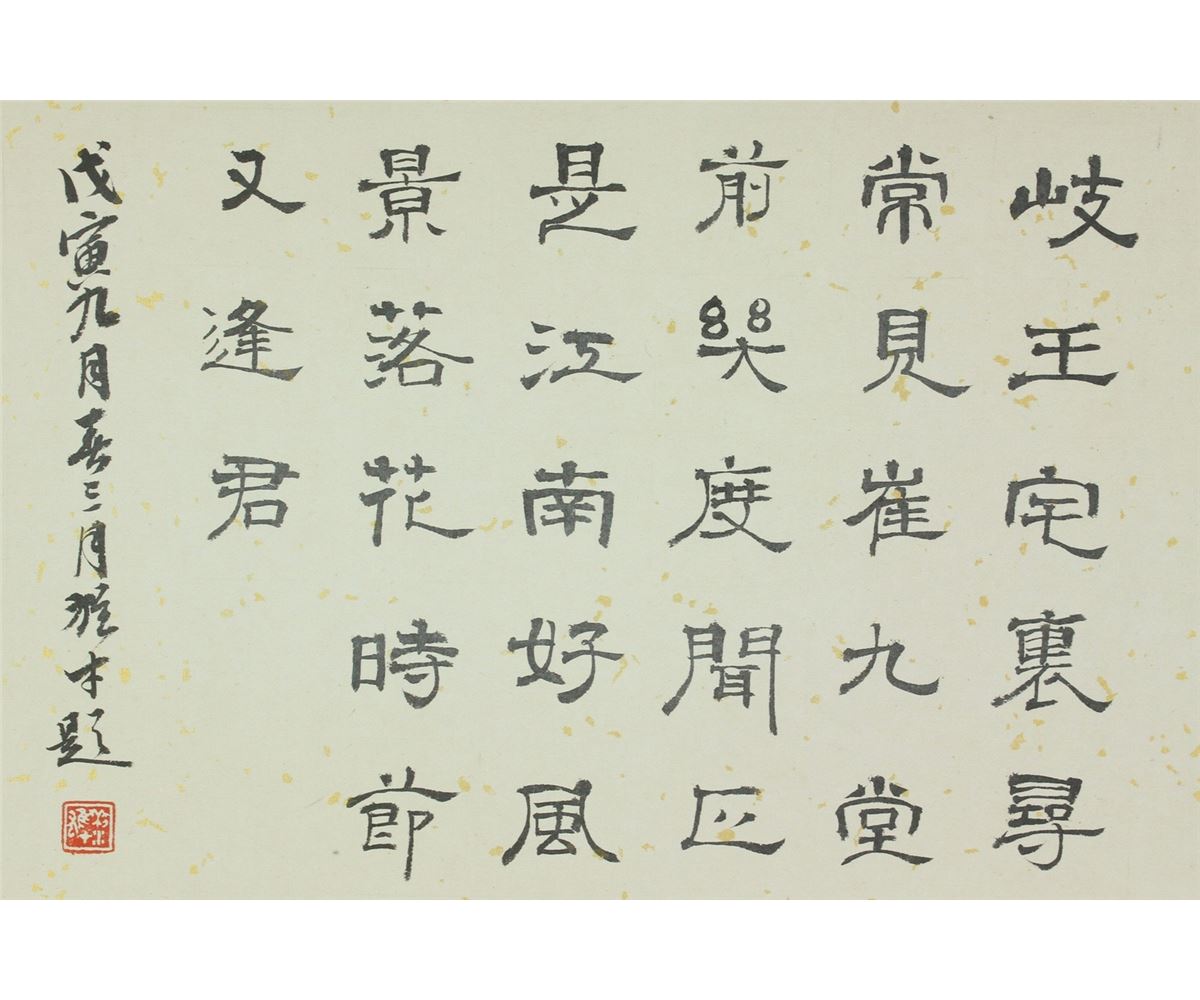 岐王宅裏尋
常見崔九堂
前幾度聞正
是江南好風
景落花時節
又逢君
戊寅九月三月才題